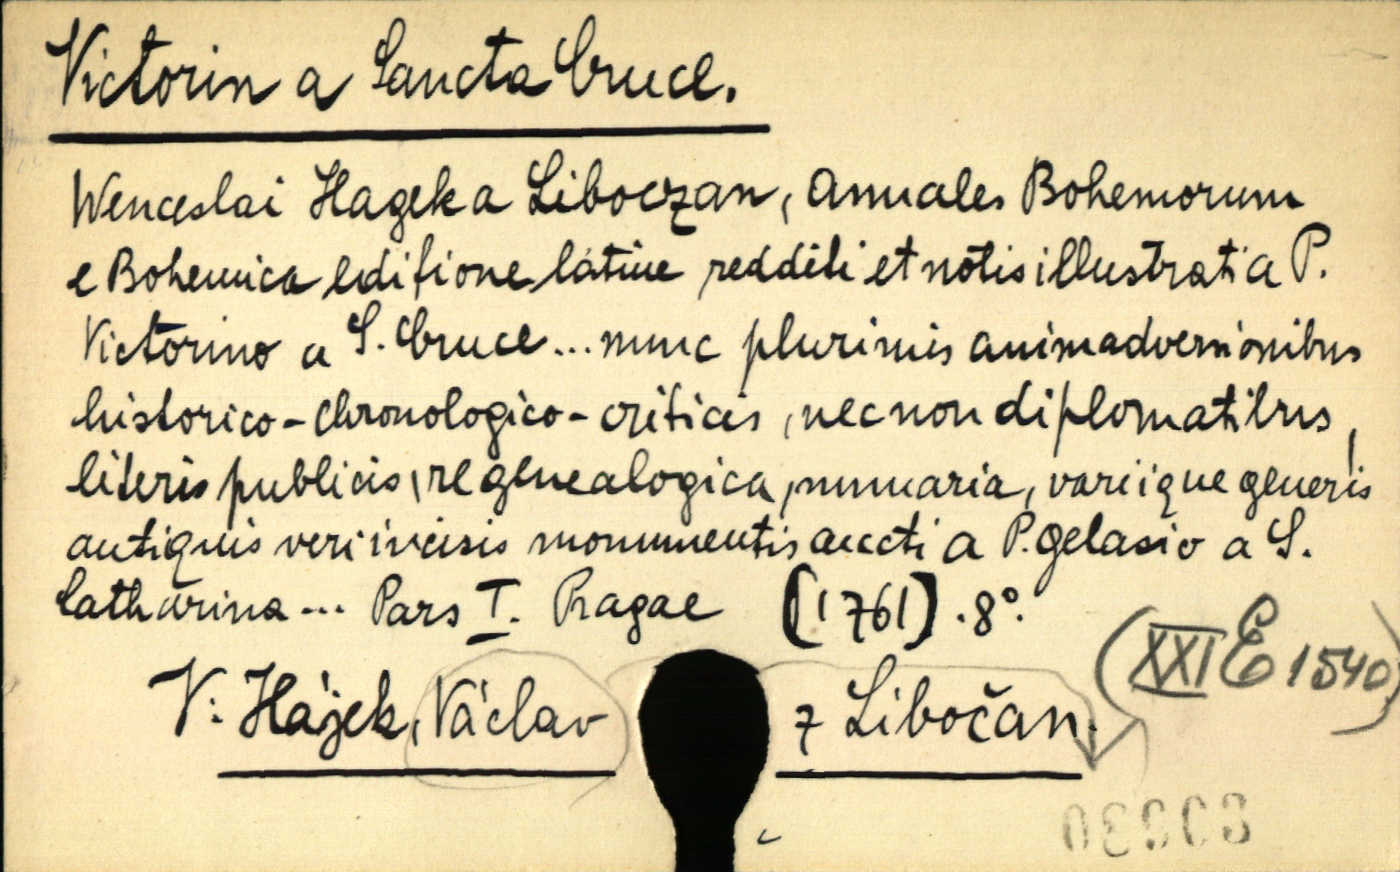 Victorin a Sancta Cruce.
Wenceslai Hagek a Liboczan, Annales Bohemorum
e Bohemica editione latine redditi et notis illustrati a P.
Victorino a S. Cruce... nunc plurimis animadversionibus
historico-chronologico-criticis, nec non diplomatibus,
literis publicis, re genealogica, numaria, variique generis
antiquis veri incisis monumentis aucti a P. Gelasio a S.
Catharina... Pars I. Pragae (1761). 8°.
(XXI E 1540)
V: Hájek, Václav z Libočan.